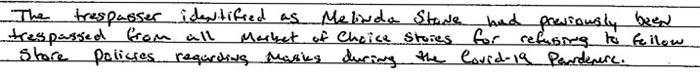 The trespasser identified as Melinda Stone had previously been
trespassed from all Market of Choice stores for refusing to follow
Store policies regarding Masks during the Covid-19 Pandemic.